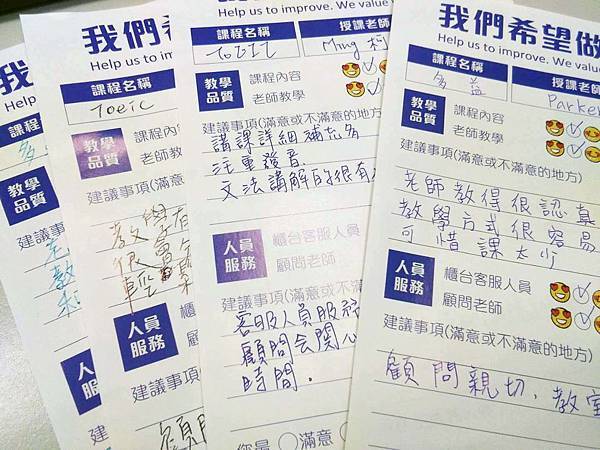 我們希望做
Help us to improve. We value
課程名稱
授課老師
多益
Parker
教學品質
課程內容
老師教學
建議事項(滿意或不滿意的地方)
老師教得很認真
教學方式很容易
可惜課太少
人員服務
櫃台客服人員
顧問老師
建議事項(滿意或不滿意的地方)
顧問親切,教室
Help us to improve. We value
課程名稱
授課老師
Ming 莉
教學品質
課程內容
老師教學
建議事項(滿意或不滿意的地方)
講課詳細 補充多
注重發音
文法講解的很有
人員服務
櫃台客服人員
顧問老師
建議事項(滿意或不滿意的地方)
客服人員服務
顧問會關心
時間.
您是
滿意
我們希
Help us to im
課程名稱
Toeic
教學品質
課程內
老師教
建議事項(滿意
教學有
很
輕
人員服務
櫃
顧
建議事項
顧問
Help
課程
多
教學品質
建議事
人員
建